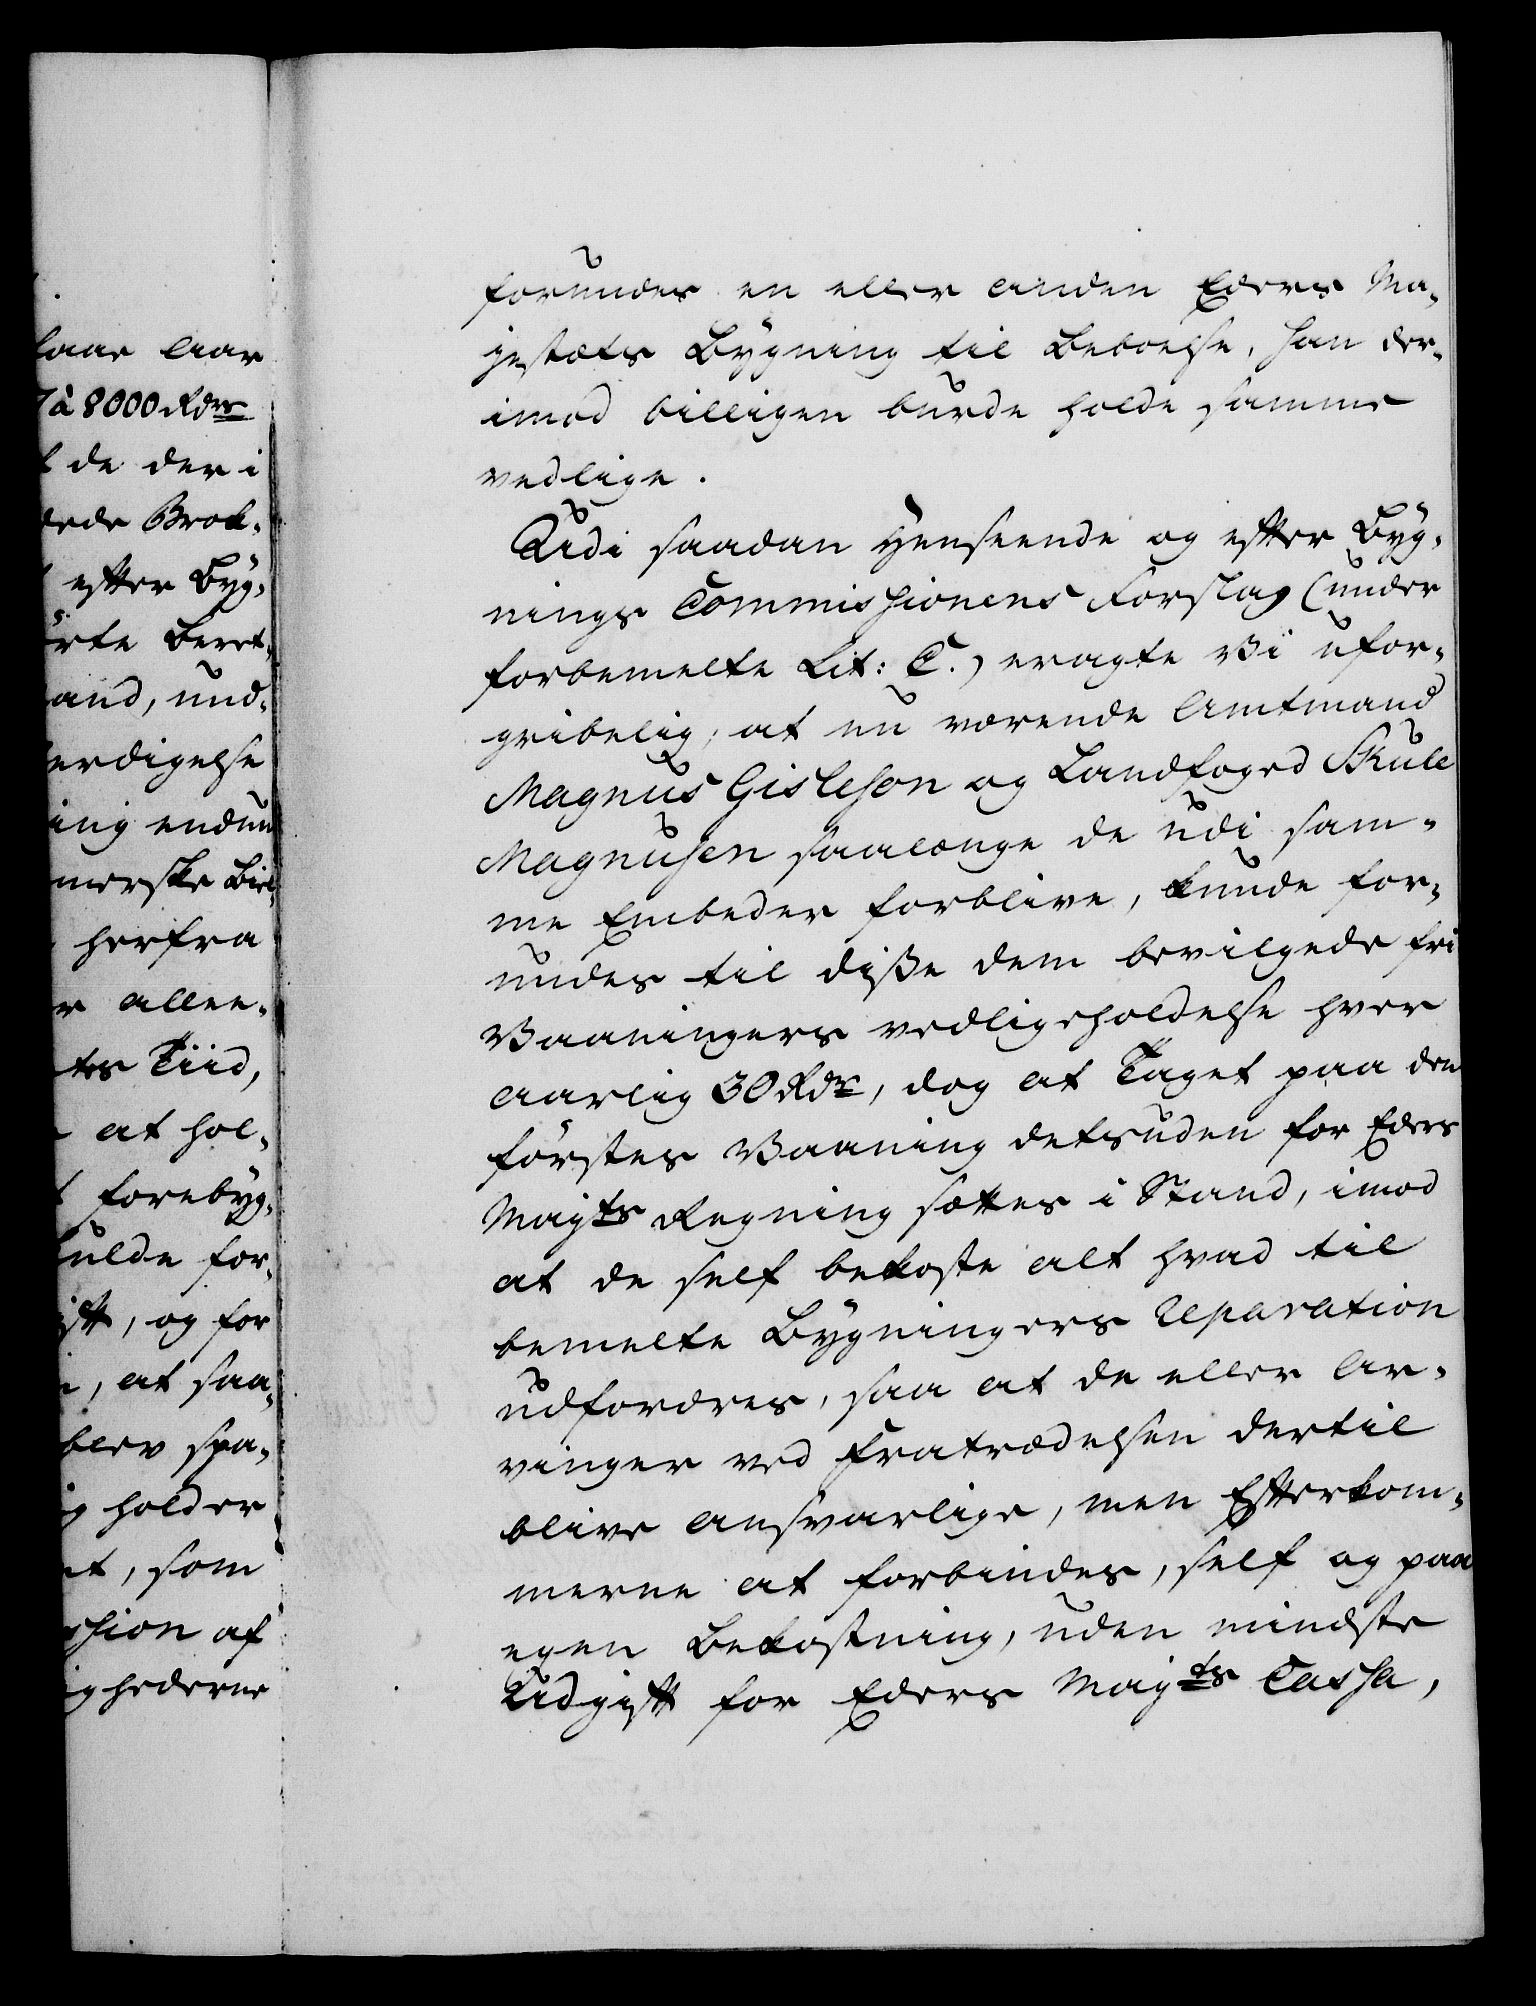 laar Aar
7 à 8000 Rdr
de der i
Brok-
efter Byg-
rte Beret-
and, und-
erdigelse
ing endnu
merske Biel-
herfra
r allee-
tes Tiid,
at hol-
forebyg-
ulde for-
ift, og for
, at saa-
blev spa-
g holder
et, som
ssion af
ighederne
forundes en eller anden Eders Ma-
jestæts Bygning til Beboelse, han der-
imod billigen burde holde samme
vedlige.
Udi saadan Henseende og efter Byg-
nings Commissionens Forslag (under
forbemelte Lit: C.) eragte Vi ufor-
gribelig, at nu værende Amtmand
Magnus Gisleson og Landfoged Skule
Magnusen saalænge de udi sam-
me Embeder forblive, kunde for-
undes til disse dem bevilgede fri
Vaaningers vedligeholdelse hver
aarlig 30 Rdr, dog at Taget paa den
førstes Vaaning detsuden for Eders
Majts Regning sættes i Stand, imod
at de self bekoste alt hvad til
bemelte Bygningers Reparation
udfordres, saa at de eller Ar-
vinger ved Fratrædelsen dertil
blive ansvarlige, men Efterkom-
merne at forbindes, self og paa
egen Bekostning, uden mindste
Udgift for Eders Majts Cassa,